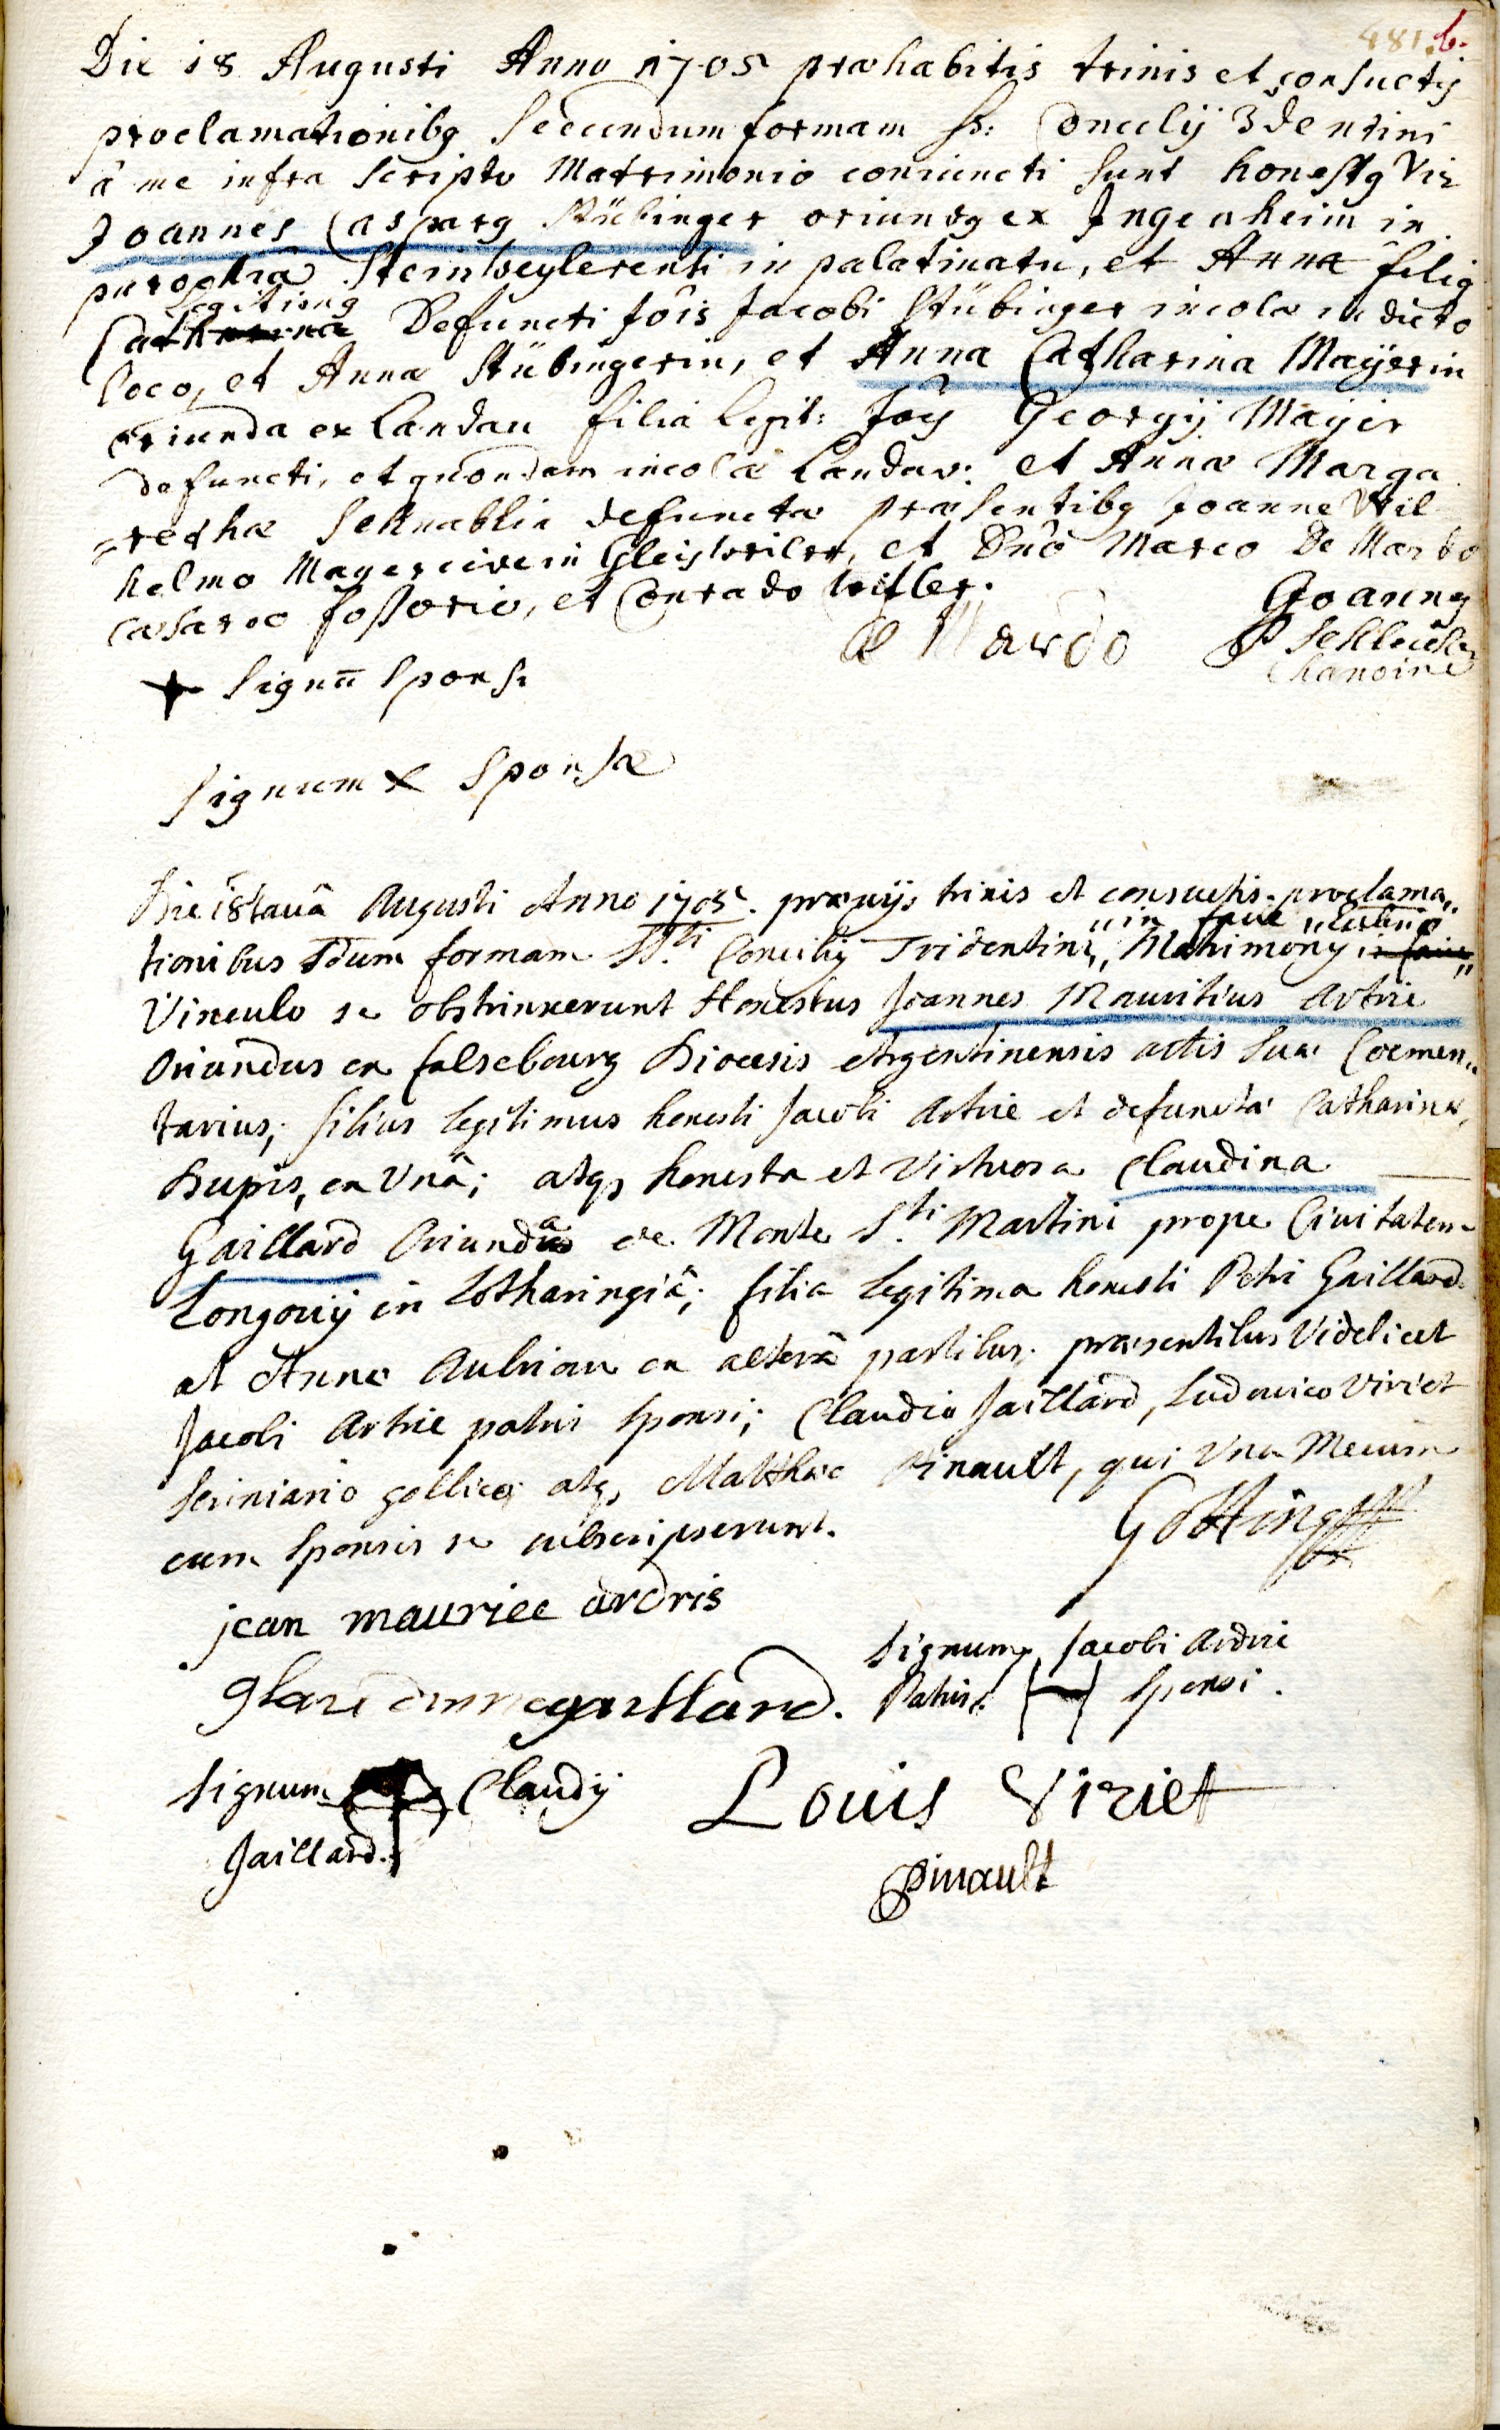 481.b.
Die 18 Augusti Anno 1705 præhabitis trinis et consuetis
proclamationibq secundum formam ss: Concilij 3dentini
â me infra scripto Matrimonio coniuncti sunt honestq Vir
Joannes Casparq Stübinger oriundq ex Ingenheim in
parochia Steinweylerensi in palatinatu, et Annæ filiq
legitimq
Catharinæ Defuncti Jois Jacobi Stübinger incolæ in dicto
loco, et Annæ Stübingerin, et Anna Catharina Mayerin
oriunda ex Landau filia legit: Jois Georgij Mayer
defuncti, et quondam incolæ Landav: et Annæ Marga
=rethæ defunctæ præsentibq Joanne Wil
helmo Mayer cive in Gleisweiler, et Dno Marco De Mardo
fossorio, et Conrado
Joannes
De Mardo
Chanoine
+ signū sponsi
signum x sponsæ
Die 18tauâ Augusti Anno 1705. præuijs trinis et consuetis proclama„
„in facie „Ecclesiæ
tionibus 2dum formam Sti. Concilij Tridentini„ Matrimonij in facie„
Vinculo se obstrinxerunt Honestus Joannes Mauritius Artrie
Oriundus ex falsebourg Diocesis Argentinensis artis suæ Cœmen„
tarius, filius legitimus honesti Jacobi Artrie et defunctæ Catharinæ
Dupis, ex Vnâ; atq, honesta et Virtuosa Claudina
Gaillard Oriunda de Monte Sti. Martini prope Ciuitatem
Longouij in Lotharingiâ; filia legitima honesti Petri Gaillard
et Annæ Aubrion ex alterâ partibus; præsentibus Videlicet
Jacobi Artrie patris sponsi; Claudio Jaillard, Ludouico Viriet
scriniario gallico; atq, Matthæo Pinault, qui Vna Mecum
cum sponsis se subscripserunt.
Gotting
jean mauriee ardris
signum Jacobi Ardrie
gaillard. Patris sponsi.
signum Claudij
Louis Viriet
Jaillard.
Pinault